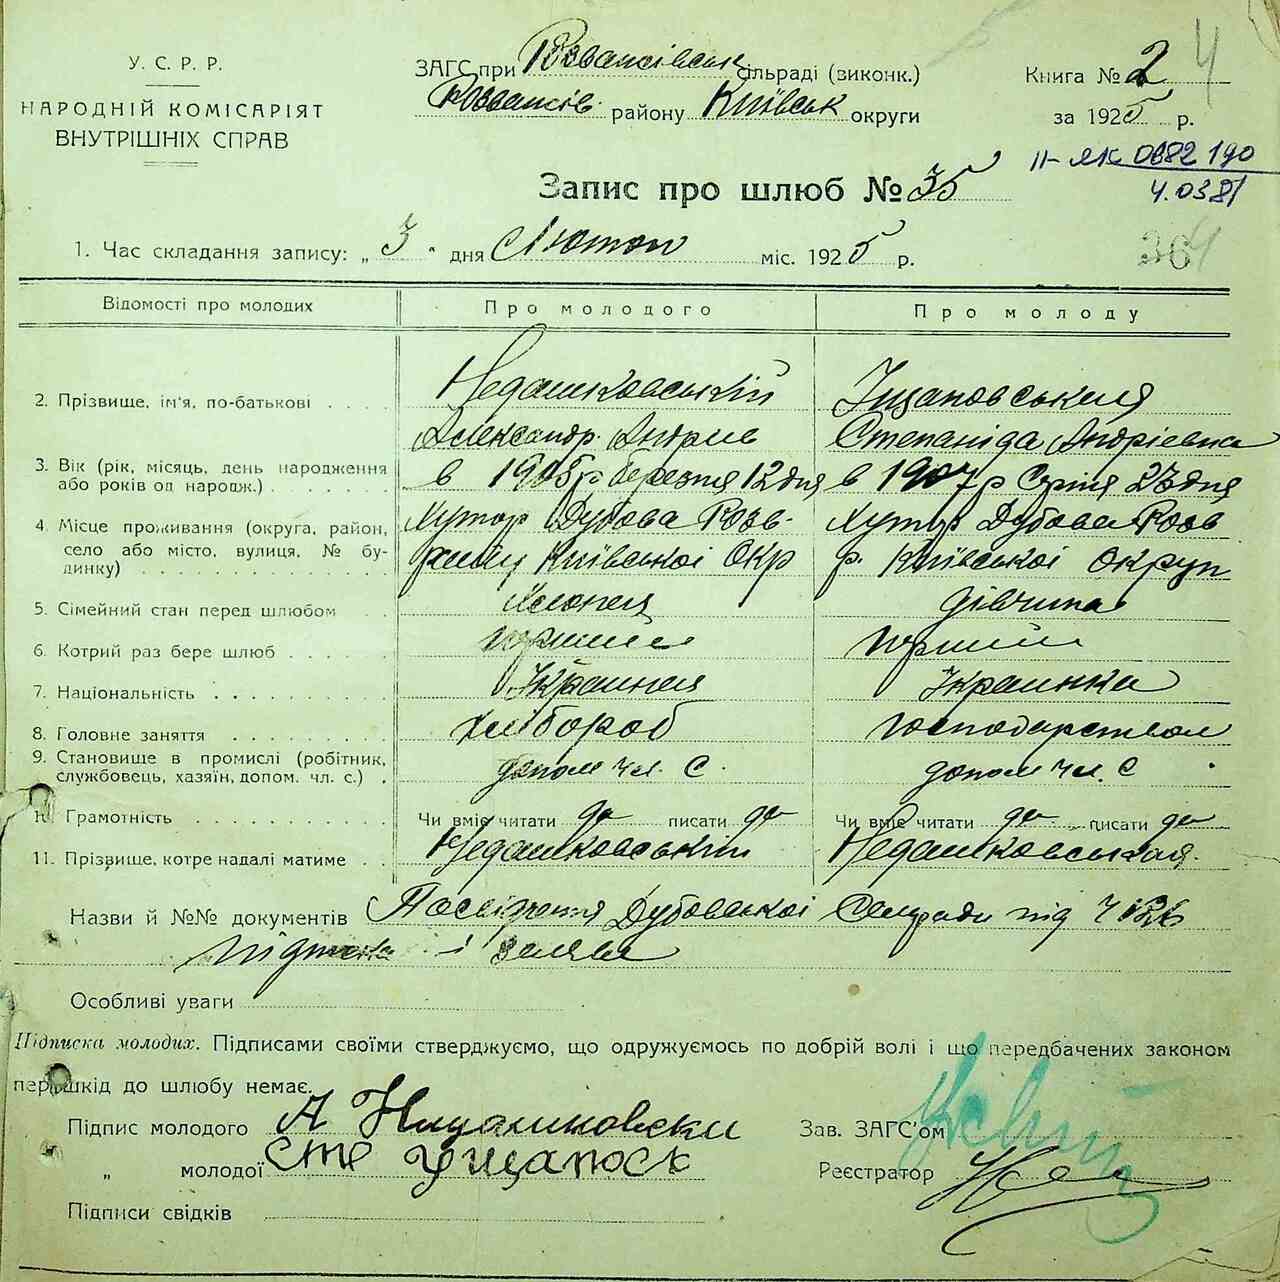 У. С. Р. Р.
НАРОДНІЙ КОМІСАРІЯТ
ВНУТРІШНІХ СПРАВ
ЗАГС при Розважівськ сільраді (виконк.)
Розважів. району Київськ округи
Книга № 2
4
за 1925 р.
II-ЯК 0682 190
4.0381
Запис про шлюб № 35
1. Час складання запису: „ 3 " дня Лютого міс. 1925 р.
364
Відомості про молодих Про молодого Про молоду
2. Прізвище, ім'я, по-батькові . . . . Недашковський
Александр Андрієв Степаніда Андріевна
3. Вік (рік, місяць, день народження
або років од народж.) . . . . . . . в 1905 р березня 12 дня в 1907 р Серпня 23 дня
4. Місце проживання (округа, район, Хутор Дубова Розв. Хутір Дубова Розв
село або місто, вулиця, № бу-
динку) . . . . . . . . . . . . району Київської Окр р. Київської Округи
5. Сімейний стан перед шлюбом . . Хлопець дівчина
6. Котрий раз бере шлюб . . . . . . перший перший
7. Національність . . . . . . . . . Українець Украинка
8. Головне заняття . . . . . . . . . хлібороб господарством
9. Становище в промислі (робітник,
службовець, хазяїн, допом. чл. с.) . допом чл. С. допом чл. С
10. Грамотність . . . . . . . . . . . Чи вміє читати да писати да Чи вміє читати да писати да
11. Прізвище, котре надалі матиме . . Недашковський Недашковськая.
Назви й №№ документів Посвідчення Дубовської Сельради під ч
підписка і заява
Особливі уваги
Підписка молодих. Підписами своїми стверджуємо, що одружуємось по добрій волі і що передбачених законом
перешкід до шлюбу немає.
Підпис молодого А Нидашковски Зав. ЗАГС'ом
„ молодої Сте Ущапоск Реєстратор
Підписи свідків